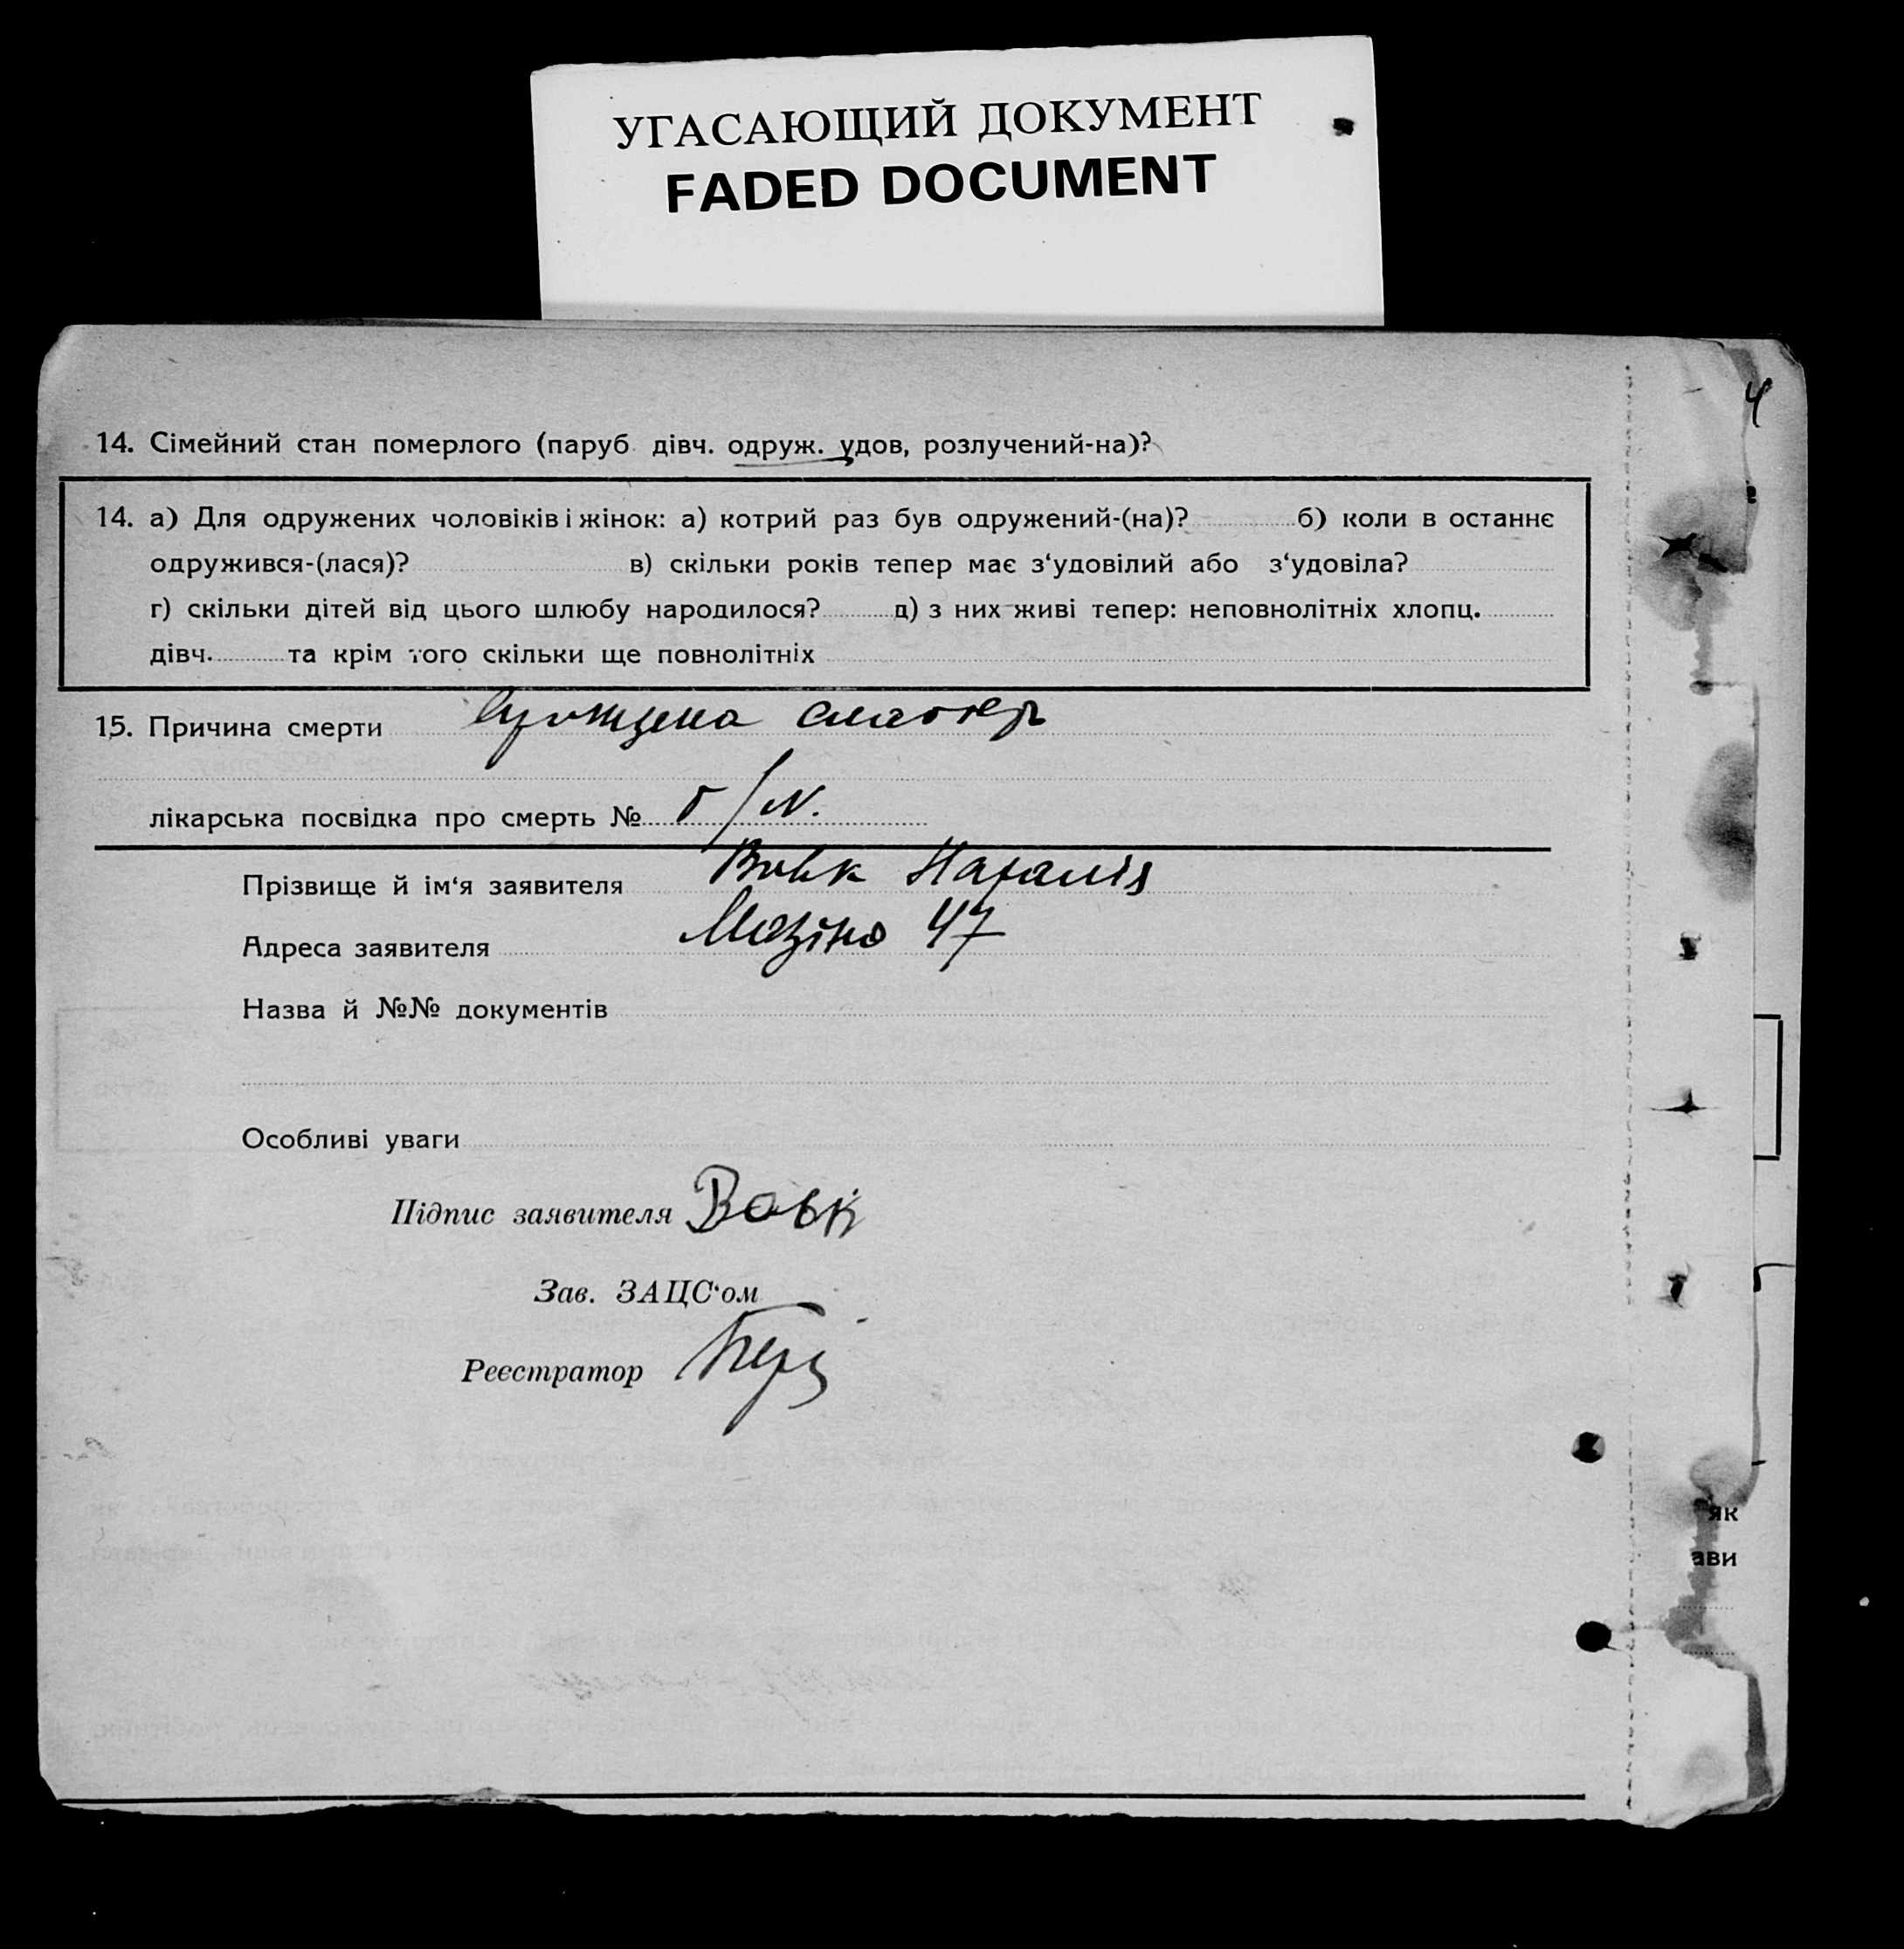 УГАСАЮЩИЙ ДОКУМЕНТ
FADED DOCUMENT
4
14. Сімейний стан померлого (паруб. дівч. одруж. удов, розлучений-на)?
14. а) Для одружених чоловіків і жінок: а) котрий раз був одружений-(на)? б) коли в останнє
одружився-(лася)? в) скільки років тепер має з‘удовілий або з‘удовіла?
г) скільки дітей від цього шлюбу народилося? д) з них живі тепер: неповнолітніх хлопц.
дівч. та крім того скільки ще повнолітніх
15. Причина смерти
лікарська посвідка про смерть №
Прізвище й ім‘я заявителя Вовк Наталія
Адреса заявителя Мазіна 47
Назва й №№ документів
Особливі уваги
Підпис заявителя Вовк
Зав. ЗАЦС‘ом
Реєстратор
як
ави